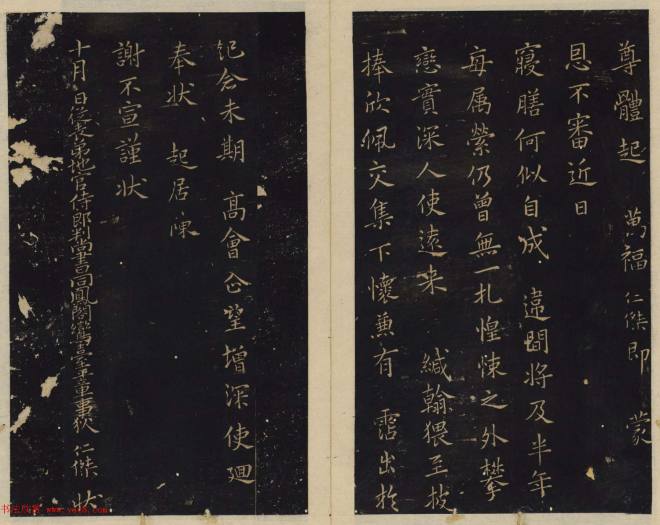 尊體起 萬福 仁傑即 蒙
恩不審近日
寢膳何似自成 違閒將及半年
每属縈仍曾無一札惶悚之外攀
戀實深人使遠来 緘翰猥至披
捧欣佩交集下懷兼有 霑出於
記念未期 高會企望增深使迴
奉状 起居陳
謝不宣謹状
十月 日從表弟地官侍郎判尚書同鳳閣鸞臺平章事狄 仁傑 状